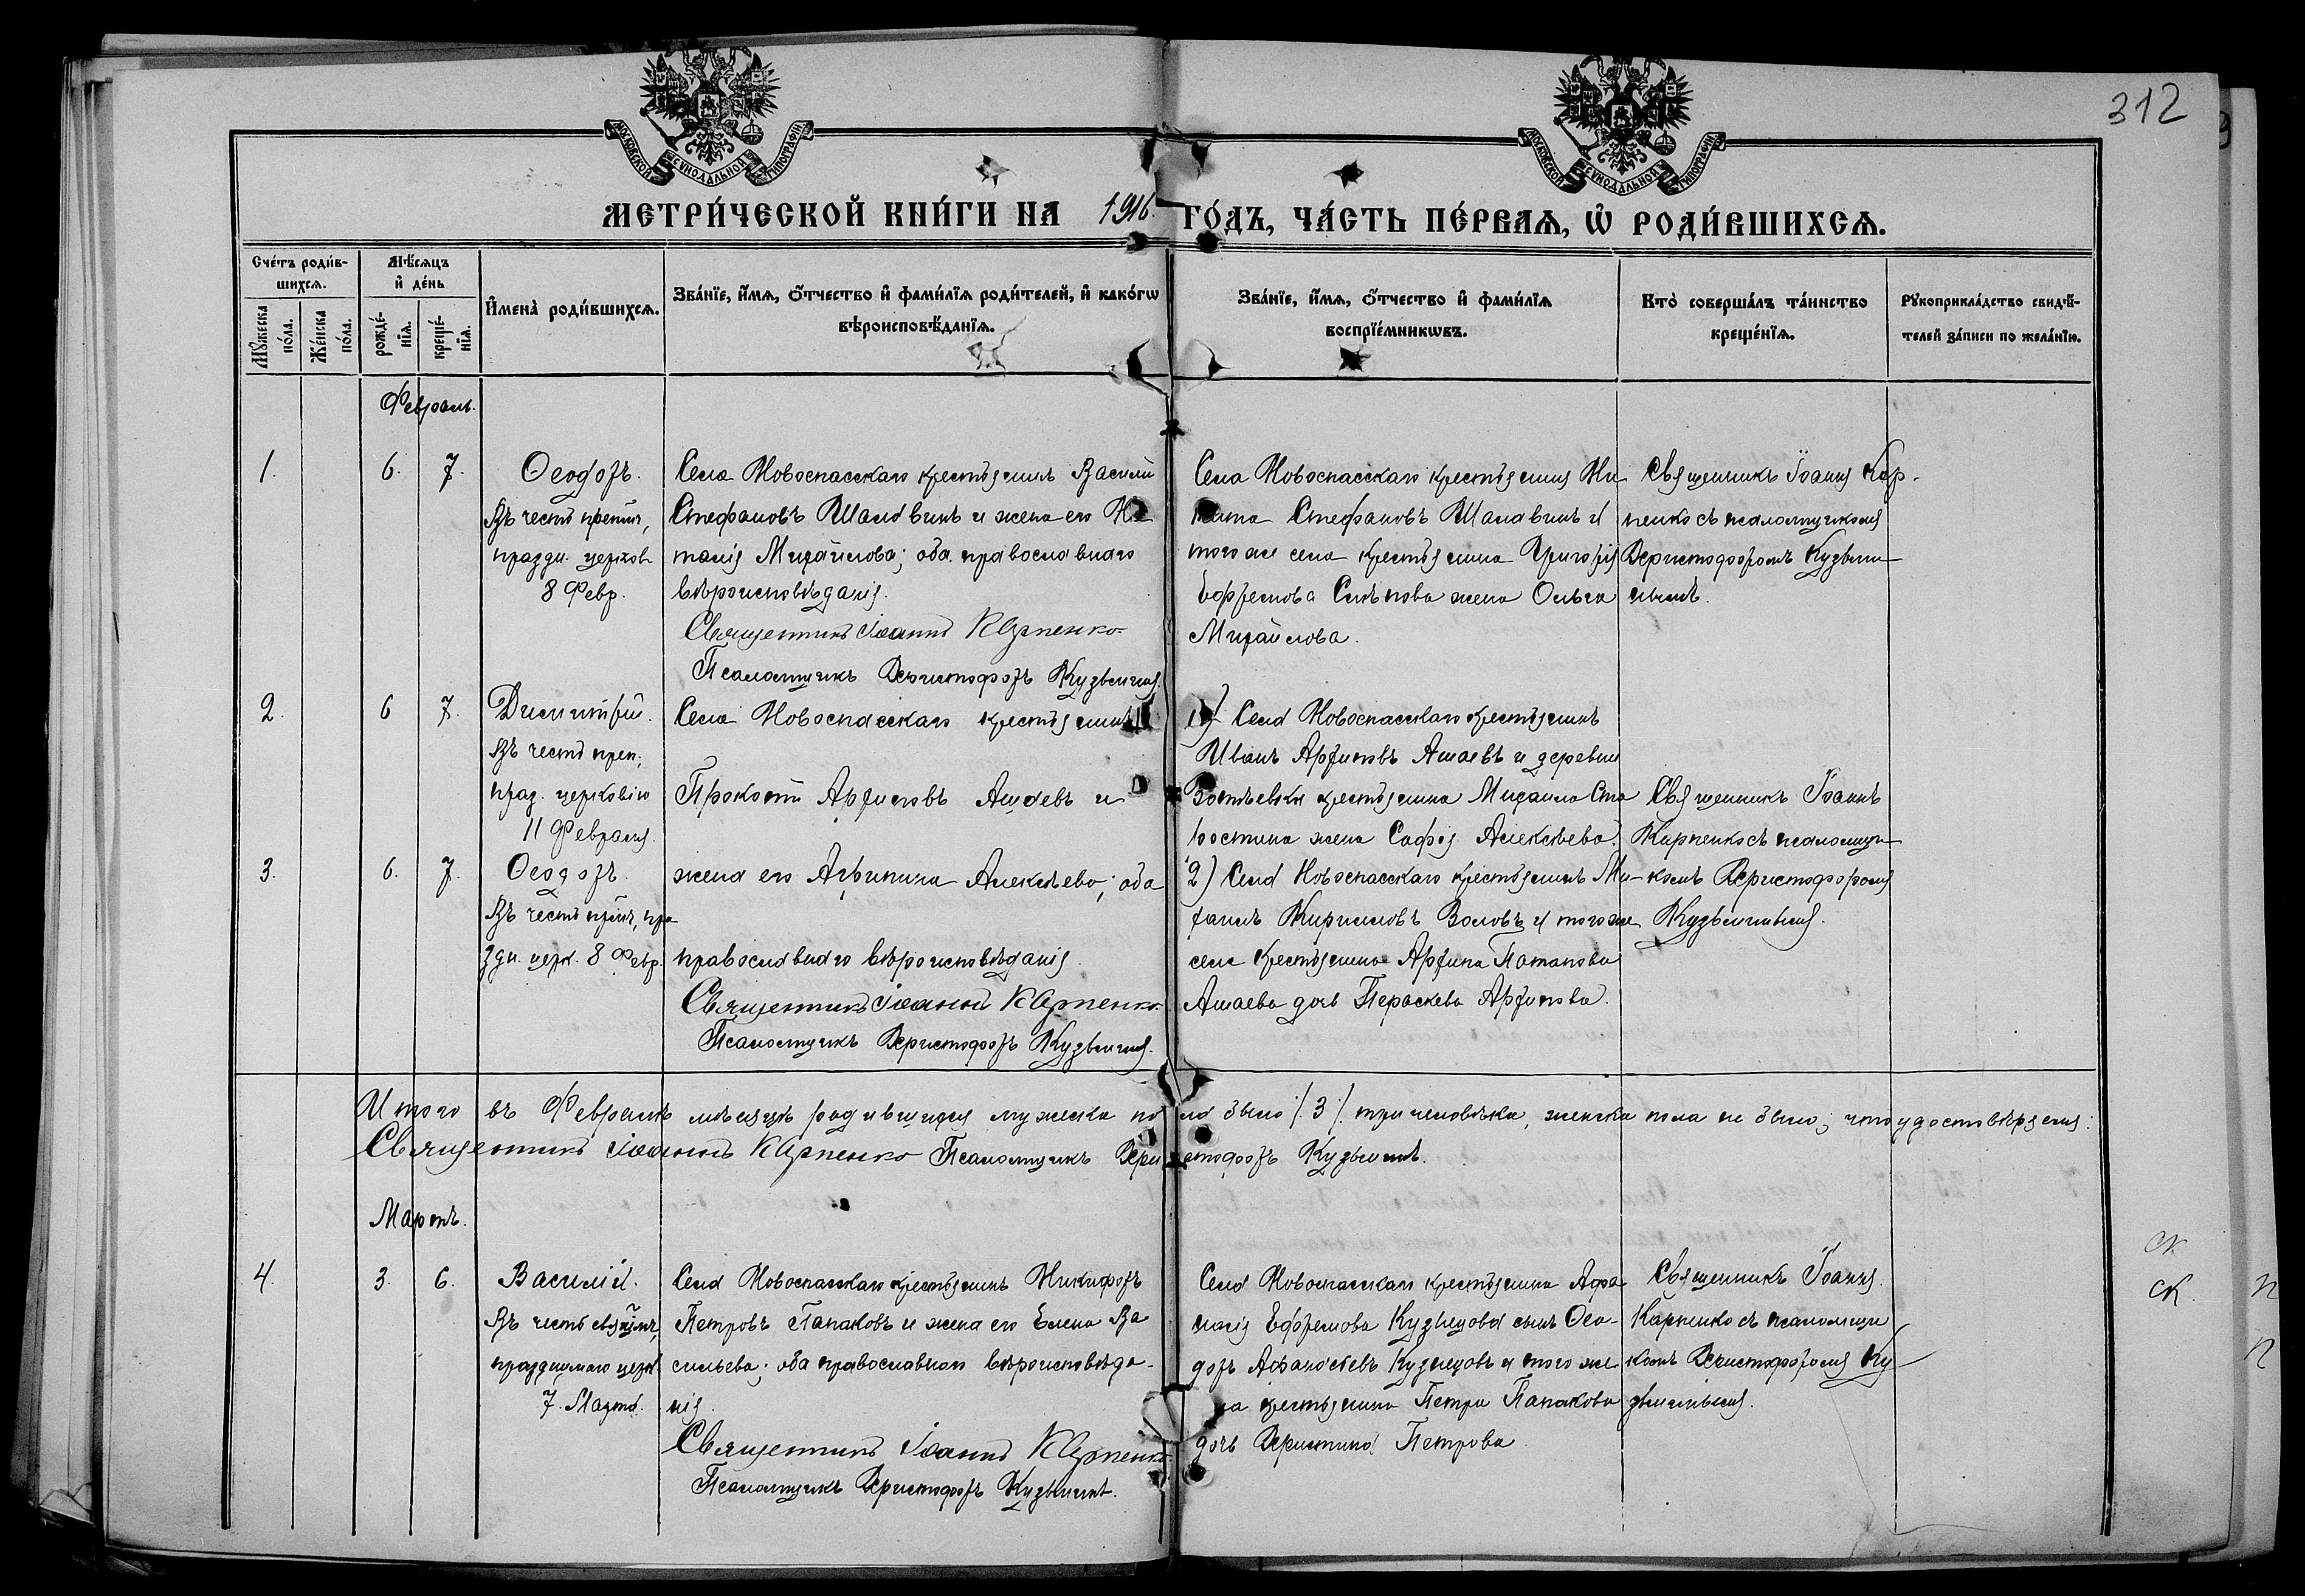 312
МОСКОВСКОЙ СѴНОДАЛЬНОЙ ТИПОГРАФІИ
МОСКОВСКОЙ СѴНОДАЛЬНОЙ ТИПОГРАФІИ
МЕТРИ́ЧЕСКОЙ КНИ́ГИ НА 1916. ГО́ДЪ, ЧА́СТЬ ПЕ́РВАѦ, Ѡ҆ РОДИ́ВШИХСѦ.
Сче́тъ роди́в-
шихсѧ.
Мꙋ́жеска по́ла.
Же́нска по́ла.
Мѣ́сѧцъ
и҆ де́нь
рожде́-
нїѧ.
креще́-
нїѧ.
И҆мена̀ роди́вшихсѧ.
Зва́нїе, и҆́мѧ, ѻ҆́тчество и҆ фами́лїѧ роди́телей, и҆ како́гѡ
вѣроисповѣ́данїѧ.
Зва́нїе, и҆́мѧ, ѻ҆́тчество и҆ фами́лїѧ
воспрїе́мникѡвъ.
Кто̀ соверша́лъ та́инство
креще́нїѧ.
Рꙋкоприкла́дство свидѣ́-
телей за́писи по жела́нїю.
Февраль.
1. 6. 7.
Ѳеодоръ.
Въ честь препод.,
праздн. церков
8 Февр.
Села Новоспасскаго крестьянинъ Василій
Стефановъ Шалавинъ и жена его На
талія Михайлова; оба православнаго
вѣроисповѣданія.
Священникъ Іоаннъ Карпенко
Псаломщикъ Христофоръ Кузьминъ.
Села Новоспасскаго крестьянинъ Ни
кита Стефановъ Шалавинъ и
того же села крестьянина Григорія
Ефремова жена Ольга
Михайлова.
Священникъ Іоаннъ Кар-
пенко съ псаломщикомъ
Христофоромъ Кузьми
нымъ.
2. 6 7.
Димитрій.
Въ честь преп.,
праз. церковію
11 Февраля.
Села Новоспасскаго крестьянинъ
Прокопій Архиповъ Ашаевъ и
3. 6. 7.
Ѳеодоръ.
Въ честь препд., пра
здн. церк. 8 Февр.
жена его Агрипина Алексѣева; оба
православнаго вѣроисповѣданія.
Священникъ Іоаннъ Карпенко.
Псаломщикъ Христофоръ Кузьминъ.
1) Села Новоспасскаго крестьянинъ
Иванъ Архиповъ Ашаевъ и деревни
крестьянина Михаила Ста
ростина жена Софія Алексѣева.
2) Села Новоспасскаго крестьянинъ Ми-
хаилъ Кирилловъ и того же
села крестьянина Архипа Потапова
Ашаева дочь Параскева Архипова.
Священникъ Іоаннъ
Карпенко съ псаломщи
комъ Христофоромъ
Кузьминымъ.
Итого въ Февралѣ мѣсяцѣ родившихся мужска пола было /:3:/ три человѣка, женска пола не было; что удостовѣряемъ:
Священникъ Іоаннъ Карпенко Псаломщикъ Христофоръ Кузьминъ.
Мартъ.
4. 3. 6.
Василій.
Въ честь священм.,
празднуемаго церк
7. Марта.
Села Новоспасскаго крестьянинъ Никифоръ
Петровъ Папаковъ и жена его Елена Ва
сильева; оба православнаго вѣроисповѣда-
нія.
Священникъ Іоаннъ Карпенко
Псаломщикъ Христофоръ Кузьминъ.
Села Новоспасскаго крестьянина Афа
насія Ефремова Кузнецова сынъ Ѳео-
доръ Афанасьевъ Кузнецовъ и того же
села крестьянина Петра Папакова
дочь Христина Петрова
Священникъ Іоаннъ
Карпенко съ псаломщи
комъ Христофоромъ Ку
зьминымъ.
ск
ск. п
п